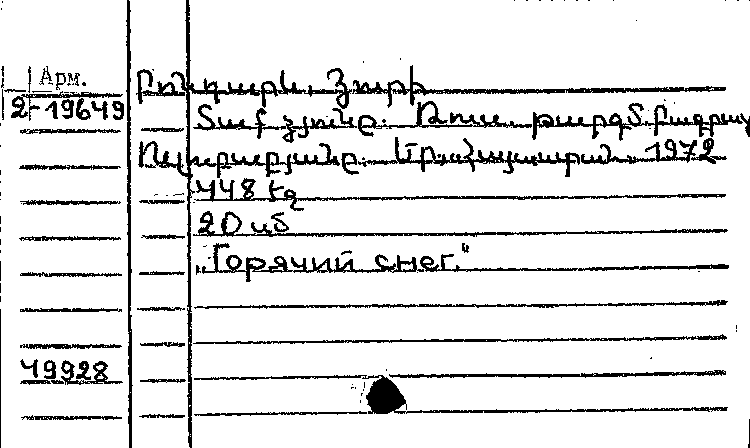 Арм.
2-19649
Բոնդարև, Յուրի
Տաք ձյունը. Ռուս. թարգմ. Բագրատ
Ոլուբաբյանը. Եր., Հայաստան, 1972
448 էջ
20 սմ
„Горячий снег."
49928